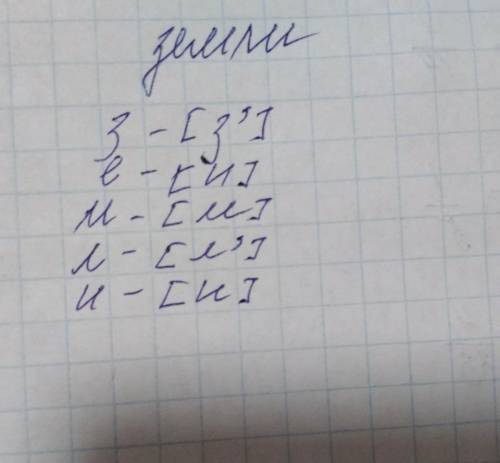 земли
з - [з']
е - [и]
м - [м]
л - [л']
и - [и]